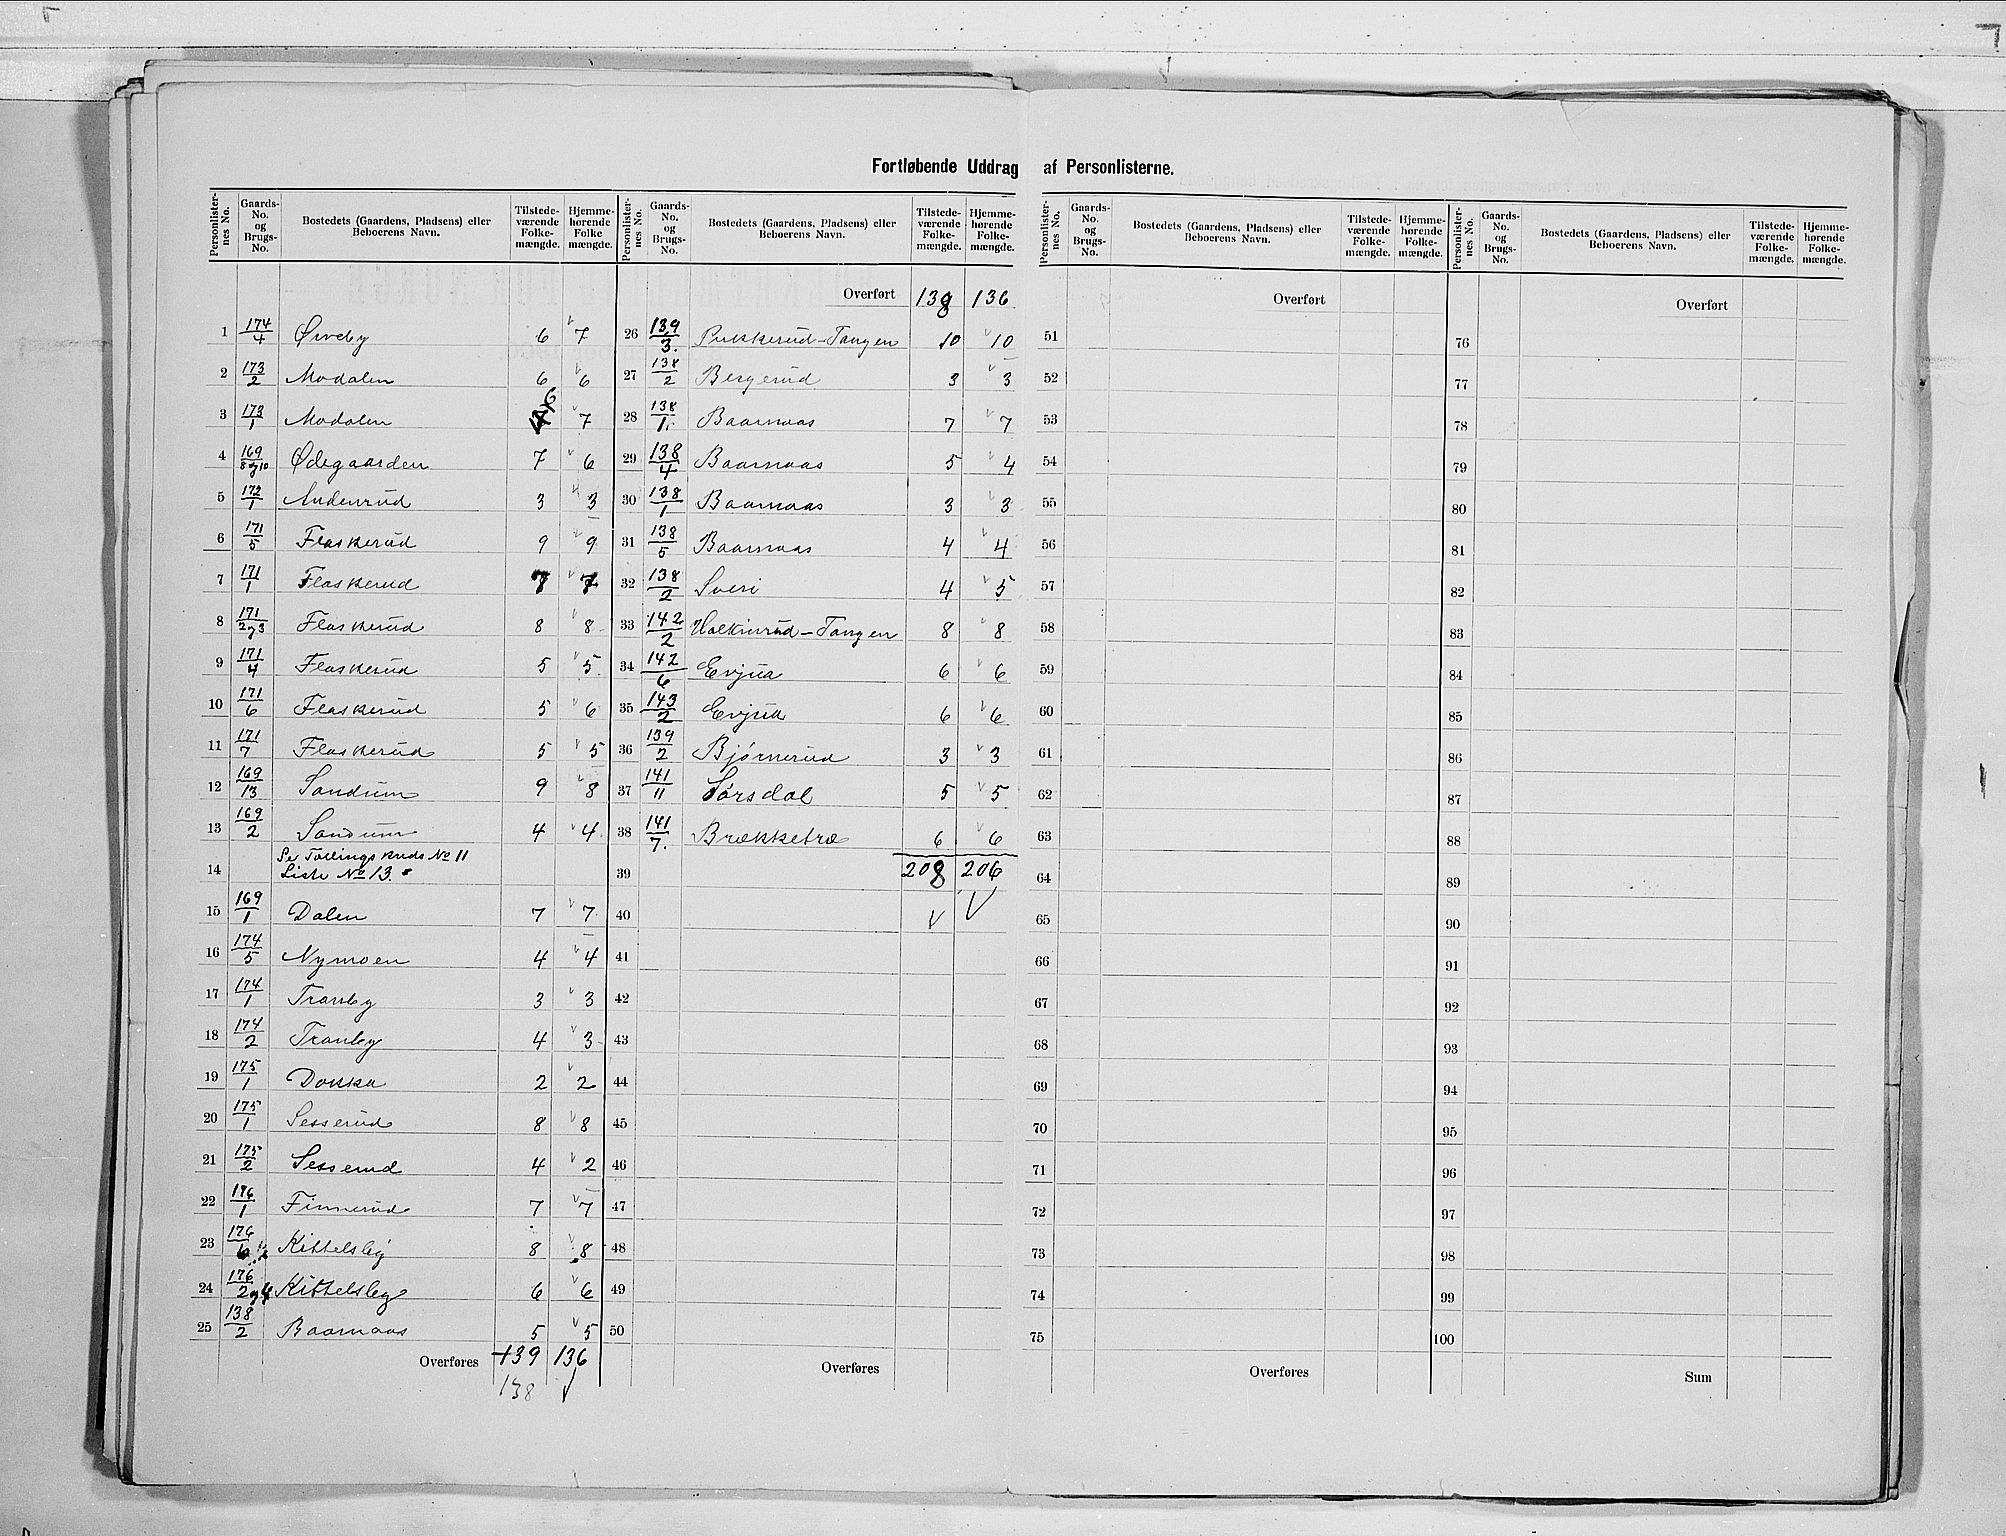 Fortløbende Uddrag af Personlisterne.
Personlister-nes No. Gaards-No. og Brugs-No. Bostedets (Gaardens, Pladsens) eller Beboerens Navn. Tilstede-værende Folke-mængde. Hjemme-hørende Folke mængde.
1 174/4 Ørveby 6 7
2 173/2 Modalen 6 6
3 173/1 Modalen 6 7
4 169/8 og 10 Ødegaarden 7 6
5 172/1 Andenrud 3 3
6 171/5 Flaskerud 9 9
7 171/1 Flaskerud 7 7
8 171/2 og 3 Flaskerud 8 8
9 171/4 Flaskerud 5 5
10 171/6 Flaskerud 5 6
11 171/7 Flaskerud 5 5
12 169/13 Sandum 9 8
13 169/2 Sandum 4 4
14 Se Tællingskreds No 11
Liste No 13.
15 169/1 Dalen 7 7
16 174/5 Nymoen 4 4
17 174/1 Tranby 3 3
18 174/2 Tranby 4 3
19 175/1 Dokka 2 2
20 175/1 Sesserud 8 8
21 175/2 Sesserud 4 2
22 176/1 Finnerud 7 7
23 176/6 Kittelsby 8 8
24 176/2 og 4 Kittelsby 6 6
25 138/2 Baarnaas 5 5
Overføres 139 136
138
Personlister-nes No. Gaards-No. og Brugs-No. Bostedets (Gaardens, Pladsens) eller Beboerens Navn. Tilstede-værende Folke-mængde. Hjemme-hørende Folke-mængde.
Overført 138 136
26 139/3. Pukkerud-Tangen 10 10
27 138/2 Bergerud 3 3
28 138/1. Baarnaas 7 7
29 138/4 Baarnaas 5 4
30 138/1 Baarnaas 3 3
31 138/5 Baarnaas 4 4
32 138/2 Sveri 4 5
33 142/2 Holtinrud-Tangen 8 8
34 142/6 Evjua 6 6
35 143/2 Evjua 6 6
36 139/2 Bjørnerud 3 3
37 141/11 Sørsdal 5 5
38 141/7. Brækketræ 6 6
39 208 206
40
41
42
43
44
45
46
47
48
49
50
Overføres
Personlister-nes No. Gaards-No. og Brugs-No. Bostedets (Gaardens, Pladsens) eller Beboerens Navn. Tilstede-værende Folke-mængde. Hjemme-hørende Folke-mængde.
Overført
51
52
53
54
55
56
57
58
59
60
61
62
63
64
65
66
67
68
69
70
71
72
73
74
75
Overføres
Personlister-nes No. Gaards-No. og Brugs-No. Bostedets (Gaardens, Pladsens) eller Beboerens Navn. Tilstede-værende Folke-mængde. Hjemme-hørende Folke-mængde.
Overført
76
77
78
79
80
81
82
83
84
85
86
87
88
89
90
91
92
93
94
95
96
97
98
99
100
Sum